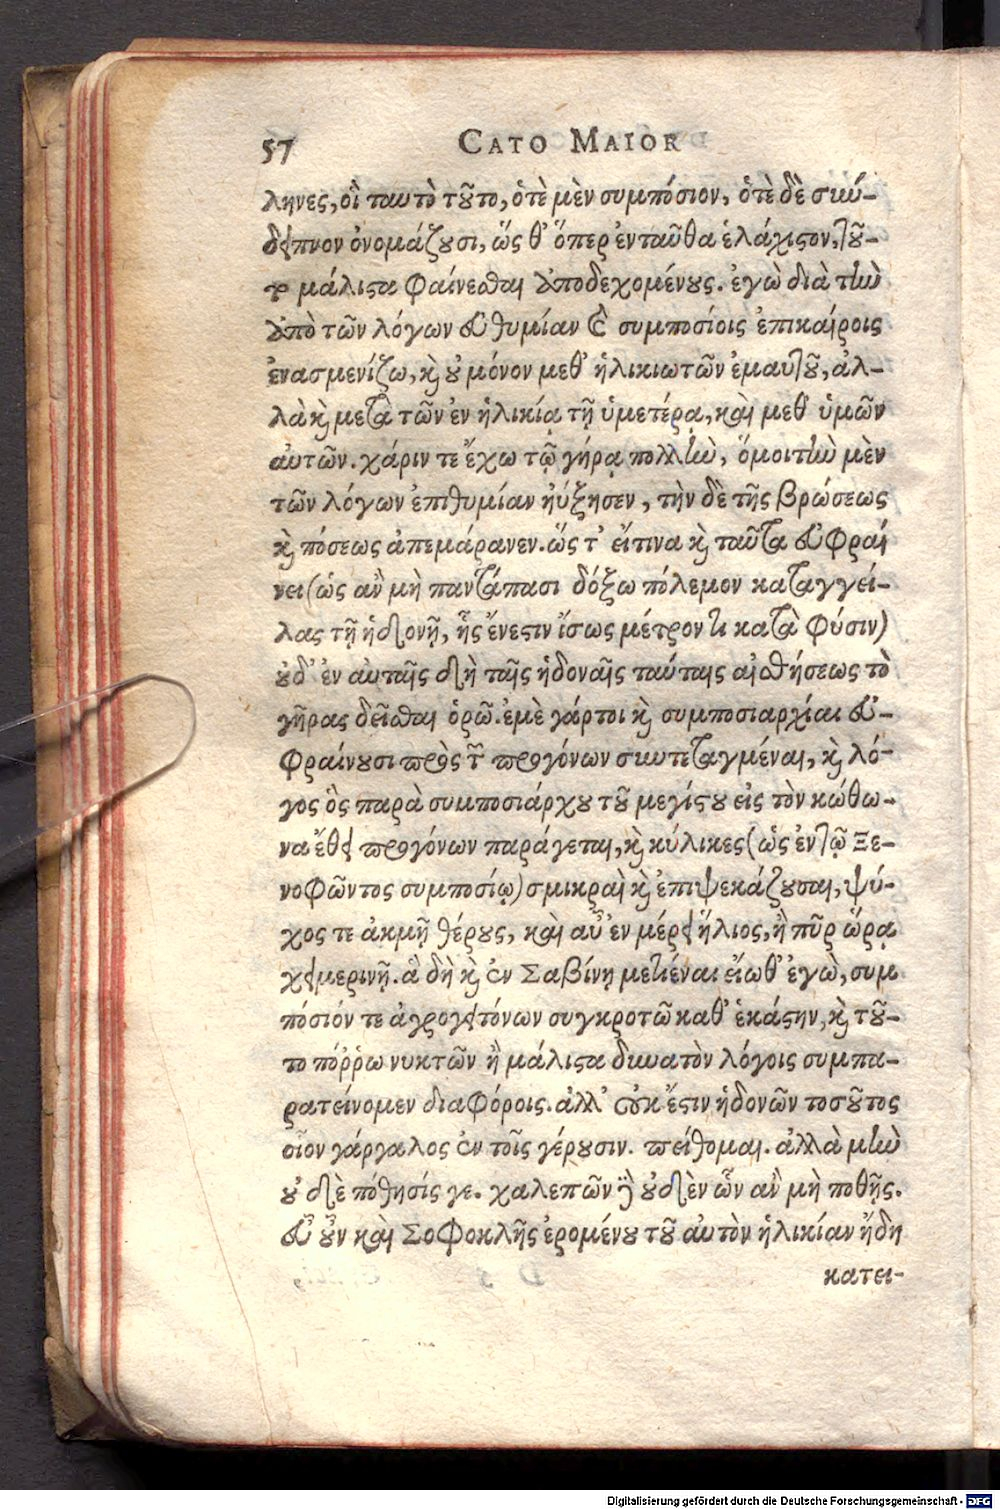 57 CATO MAIOR
ληνες, οἳ ταυτὸ τοῦτο, ὁτὲ μὲν συμπόσιον, ὁτὲ δὲ σύν-
δειπνον ὀνομάζουσι, ὥς θ' ὅπερ ἐνταῦθα ἐλάχιστον, τοῦ-
το μάλιστα φαίνεσθαι ἀποδεχομένους. ἐγὼ διὰ τὴν
ἀπὸ τῶν λόγων εὐθυμίαν ἐν συμποσίοις ἐπικαίροις
ἐνασμενίζω, καὶ οὐ μόνον μεθ' ἡλικιωτῶν ἐμαυτοῦ, ἀλ-
λὰ καὶ μετὰ τῶν ἐν ἡλικίᾳ τῇ ὑμετέρᾳ, καὶ μεθ' ὑμῶν
αὐτῶν. χάριν τε ἔχω τῷ γήρᾳ πολλὴν, ὅμοι τὴν μὲν
τῶν λόγων ἐπιθυμίαν ηὔξησεν, τὴν δὲ τῆς βρώσεως
καὶ πόσεως ἀπεμάρανεν. ὥς τ' εἴ τινα καὶ ταῦτα εὐφραί
νει (ὡς ἂν μὴ παντάπασι δόξω πόλεμον καταγγεί-
λας τῇ ἡδονῇ, ἧς ἔνεστιν ἴσως μέτρον τι κατὰ φύσιν)
οὐδ' ἐν αὐταῖς δὴ ταῖς ἡδοναῖς ταύταις αἰσθήσεως τὸ
γῆρας δεῖσθαι ὁρῶ. ἐμὲ γάρτοι καὶ συμποσιαρχίαι εὐ-
φραίνουσι πρὸς τῶν προγόνων συντεταγμέναι, καὶ λό-
γος ὃς παρὰ συμποσιάρχου τοῦ μεγίστου εἰς τὸν κώθω-
να ἔθει προγόνων παράγεται, καὶ κύλικες (ὡς ἐν τῷ Ξε-
νοφῶντος συμποσίῳ) σμικραὶ καὶ ἐπιψεκάζουσαι, ψύ-
χος τε ἀκμῇ θέρους, καὶ αὖ ἐν μέρει ἥλιος, ἢ πῦρ ὥρᾳ
χειμερινῇ. ἃ δὴ καὶ ἐν Σαβίνῃ μετιέναι εἴωθ' ἐγὼ, συμ
πόσιόν τε ἀγρογειτόνων συγκροτῶ καθ' ἑκάστην, καὶ τοῦ-
το πόῤῥω νυκτῶν ᾗ μάλιστα δυνατὸν λόγοις συμπα-
ρατείνομεν διαφόροις. ἀλλ' οὐκ ἔστιν ἡδονῶν τοσοῦτος
οἷον γάργαλος ἐν τοῖς γέρουσιν. πείθομαι. ἀλλὰ μὴν
οὐ δὲ πόθησίς γε. χαλεπῶν γὰρ οὐδὲν ὧν ἂν μὴ ποθῇς.
εὖ οὖν καὶ Σοφοκλῆς ἐρομένου τοῦ αὐτὸν ἡλικίαν ἤδη
κατει-
Digitalisierung gefördert durch die Deutsche Forschungsgemeinschaft - DFG